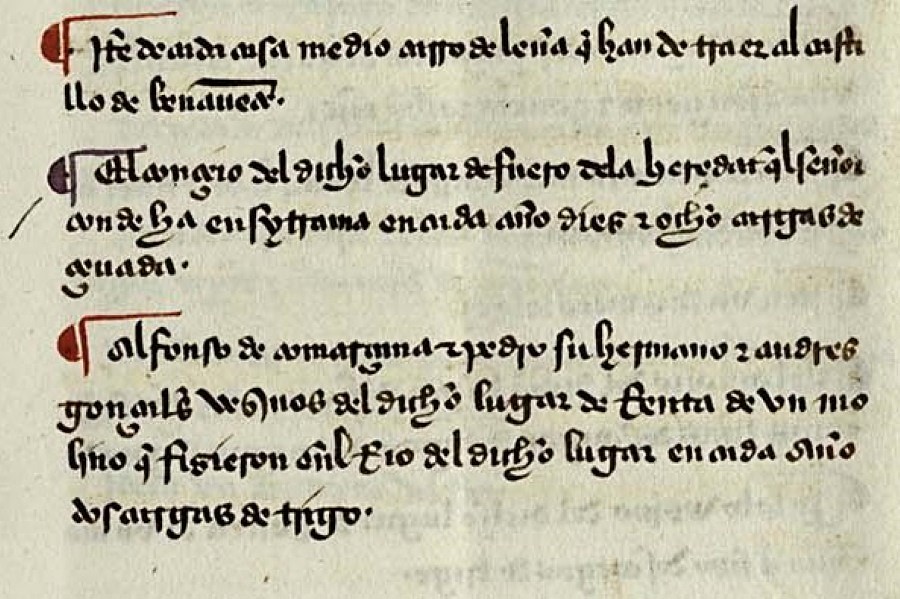 ¶ Itē de cada casa medio carro de leña q̄ han de traer al casti
llo de benauēte.
¶ El conçeio del dichͦ lugar de fuero dela heredat q̄l señor
conde ha en sytrama en cada año dies ⁊ ochͦ cargas de
çeuada.
¶ Alfonso de camarzana ⁊ pedro su hermano ⁊ andres
gonçales veçinos del dichͦ lugar de Renta de vn mo
lino q̄ fisieron enl Rio del dichͦ lugar en cada año
dos cargas de trigo.